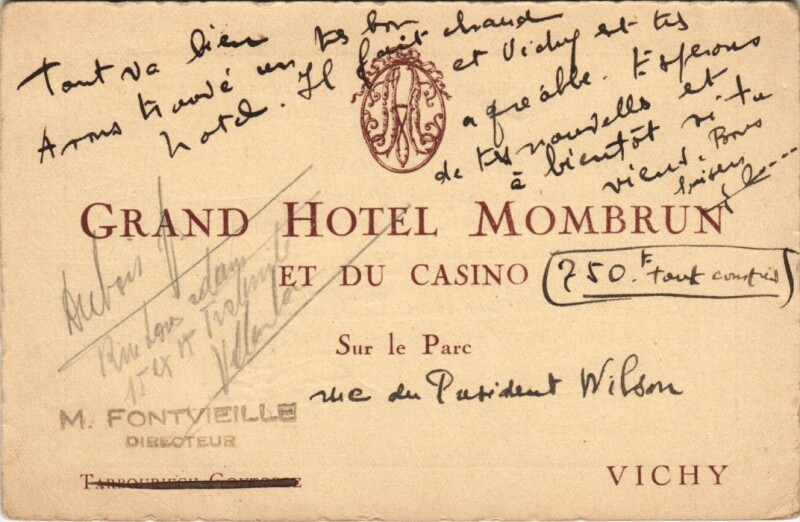 Tout va bien
Avons trouvé un très bon
hotel. Il fait chaud
et Vichy est très
agréable. Espérons
de tes nouvelles et
à bientôt si tu
viens. Bons
baisers
GRAND HOTEL MOMBRUN
ET DU CASINO
750 F tout compris
Sur le Parc
rue du Président Wilson
Dubois
Rue
M. FONTVIEILLE
DIRECTEUR
VICHY